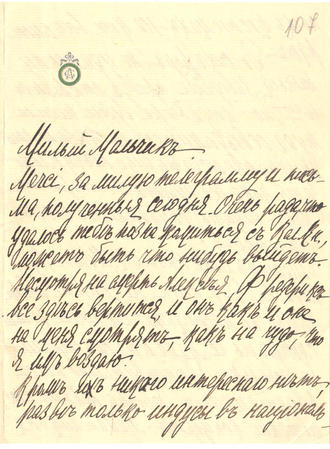 107
Милый Мальчикъ
Merci, за милую телеграмму и пись-
ма, полученныя сегодня. Очень рада, что
удалось тебѣ познакомиться съ
можетъ быть что нибудь выйдетъ.
Несмотря на
все здѣсь вертится, и онъ какъ и она
на меня смотрятъ, какъ на чудо, что
я ихъ
Кромѣ ихъ никого интереснаго нѣтъ,
развѣ только индусы въ націонал-